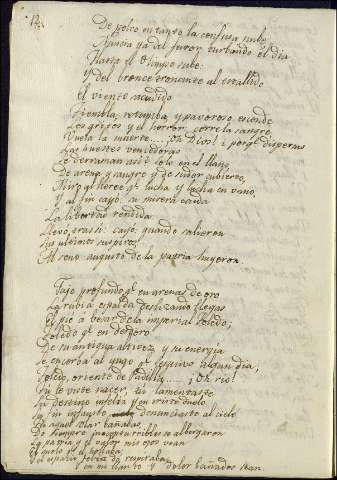 12.
De polvo en tanto la confusa nube,
Anuncia ya del furor, turbando el dia
Hasta el Olimpo sube:
Y del bronce tronante al estallido
El viento acudido
Tiembla, retumba, y pavoroso esconde
Los gritos y el horror: corre la sangre,
Vuela la muerte ... ¡Oh Dios! ¡ porq.e dispersas
Las huestes vencedoras
Se derraman asi? Solo en el llano,
De arena y sangre y de sudor cubierto,
Miro al Heroe q.e lucha y lucha en vano,
Y al fin cayó: su
La libertad rendida
Llevó tras sí: cayó; quando salieron
Sus ultimos suspiros,
Al seno augusto de la patria huyeron.
Tajo profundo, q.e en arenas de oro
La rubia espalda deslizando llegas
El pie á besar de la imperial Toledo;
Toledo q.e en desdoro
De su antigua altivez y su energia
Se encorba al yugo q.e esquivo algun dia,
Toledo, oriente de Padilla ..... ¡Oh rio!
Tu le viste nacer, tu lamentaste
Su destino infeliz y en triste duelo
Su fin infausto denunciaste al cielo
Tu aquel solar bañabas
Do siempre incorruptible se albergaron
La patria y el valor mis ojos vean
El suelo q.e el hollaba,
en mi llanto y dolor bañados sean.